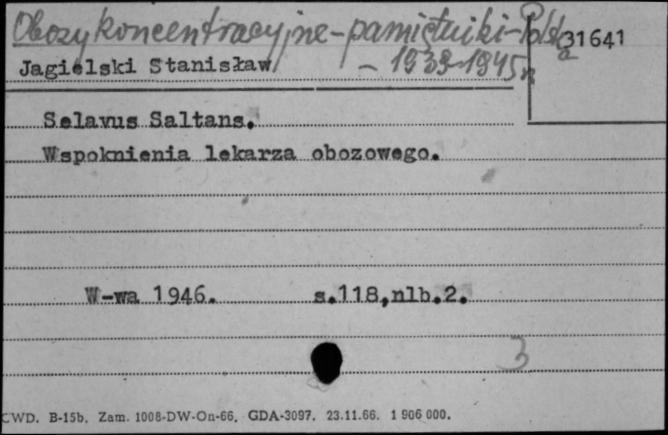 Obozy koncentracyjne - pamiętniki - Polska
31641
Jagielski Stanisław
- 1939-1945
Selavus Saltans.
Wspoknienia lekarza obozowego.
W-wa 1946. s.118,nlb.2.
3
CWD. B-15b. Zam. 1008-DW-On-66. GDA-3097. 23.11.66. 1 906 000.